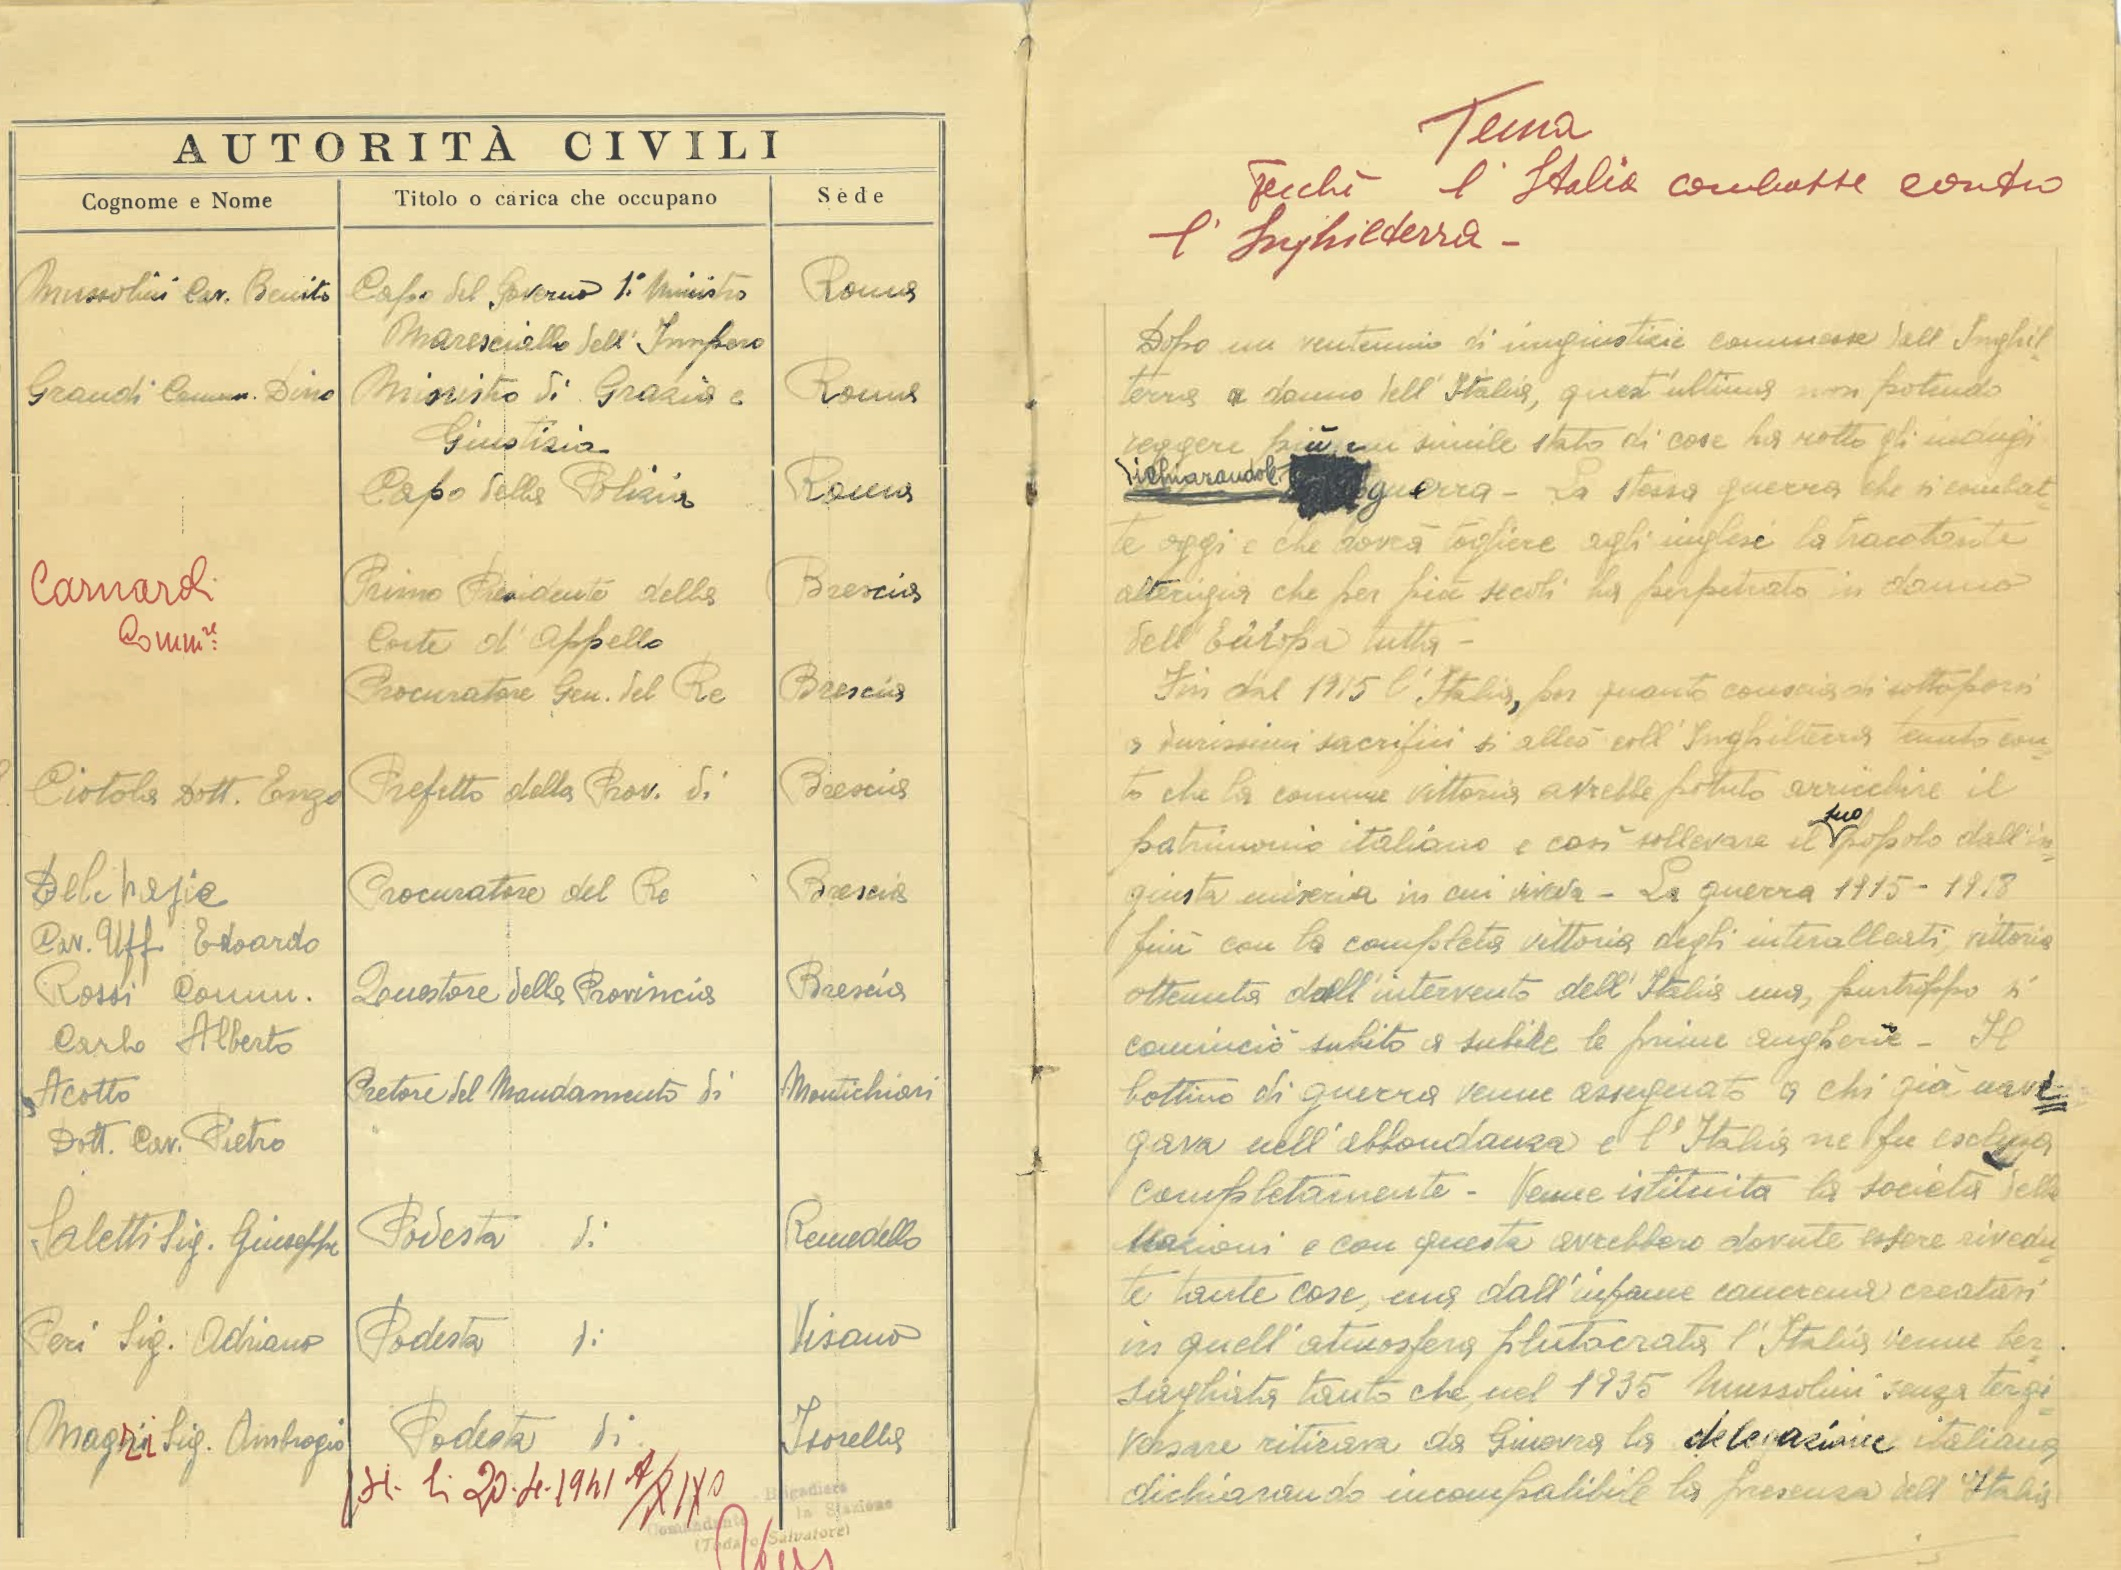 AUTORITÀ CIVILI
Cognome e Nome Titolo o carica che occupano Sede
Mussolini Cav. Benito Capo del Governo 1° Ministro Roma
Maresciallo dell'Impero
Grandi Comm. Dino Ministro di Grazia e Roma
Giustizia
Capo della Polizia Roma
Carnardi Primo Presidente della Brescia
Comm.re Corte d'Appello
Procuratore Gen. del Re Brescia
Ciotola Dott. Enzo Prefetto della Prov. di Brescia
Procuratore del Re Brescia
Cav. Uff. Edoardo
Rossi Comm. Questore della Provincia Brescia
Carlo Alberto
Acotto Pretore del Mandamento di Montichiari
Dott. Cav. Pietro
Saletti Sig. Giuseppe Podestà di Remedello
Peri Sig. Adriano Podestà di Visano
Magri Sig. Ambrogio Podestà di Isorella
li 20-4-1941 A/XIX°
Brigadiere
Comandante la Stazione
(Todaro Salvatore)
Tema
Perchè l'Italia combatte contro
l'Inghilterra -
Dopo un ventennio di inngiustizie commesse dall'Inghil-
terra a danno dell'Italia, quest'ultima non potendo
reggere più un simile stato di cose ha rotto gli indugi
dichiarandole guerra - La stessa guerra che si combat-
te oggi e che dovrà togliere agli inglesi la tracotante
alterigia che per più secoli ha perpetrato in danno
dell'Europa tutta -
Fin dal 1915 l'Italia, per quanto conscia di sottoporsi
a durissimi sacrifici si alleò coll'Inghilterra tenuto con-
to che la comune vittoria avrebbe potuto arricchire il
patrimonio italiano e così sollevare il suo popolo dall'in-
giusta miseria in cui viveva - La guerra 1915-1918
finì con la completa vittoria degli interalleati, vittoria
ottenuta dall'intervento dell'Italia ma, purtroppo si
cominciò subito a subire le prime angherie - Il
bottino di guerra venne assegnato a chi già navi-
gava nell'abbondanza e l'Italia ne fu esclusa
completamente - Venne istituita la società delle
Nazioni e con questa avrebbero dovute essere rivedu-
te tante cose, ma dall'infame canerena creatasi
in quell'atmosfera plutocrata l'Italia venne ber-
sagliata tanto che, nel 1935 Mussolini senza tergi-
versare ritirava da Ginevra la delegazione italiana
dichiarando incompatibile la presenza dell'Italia